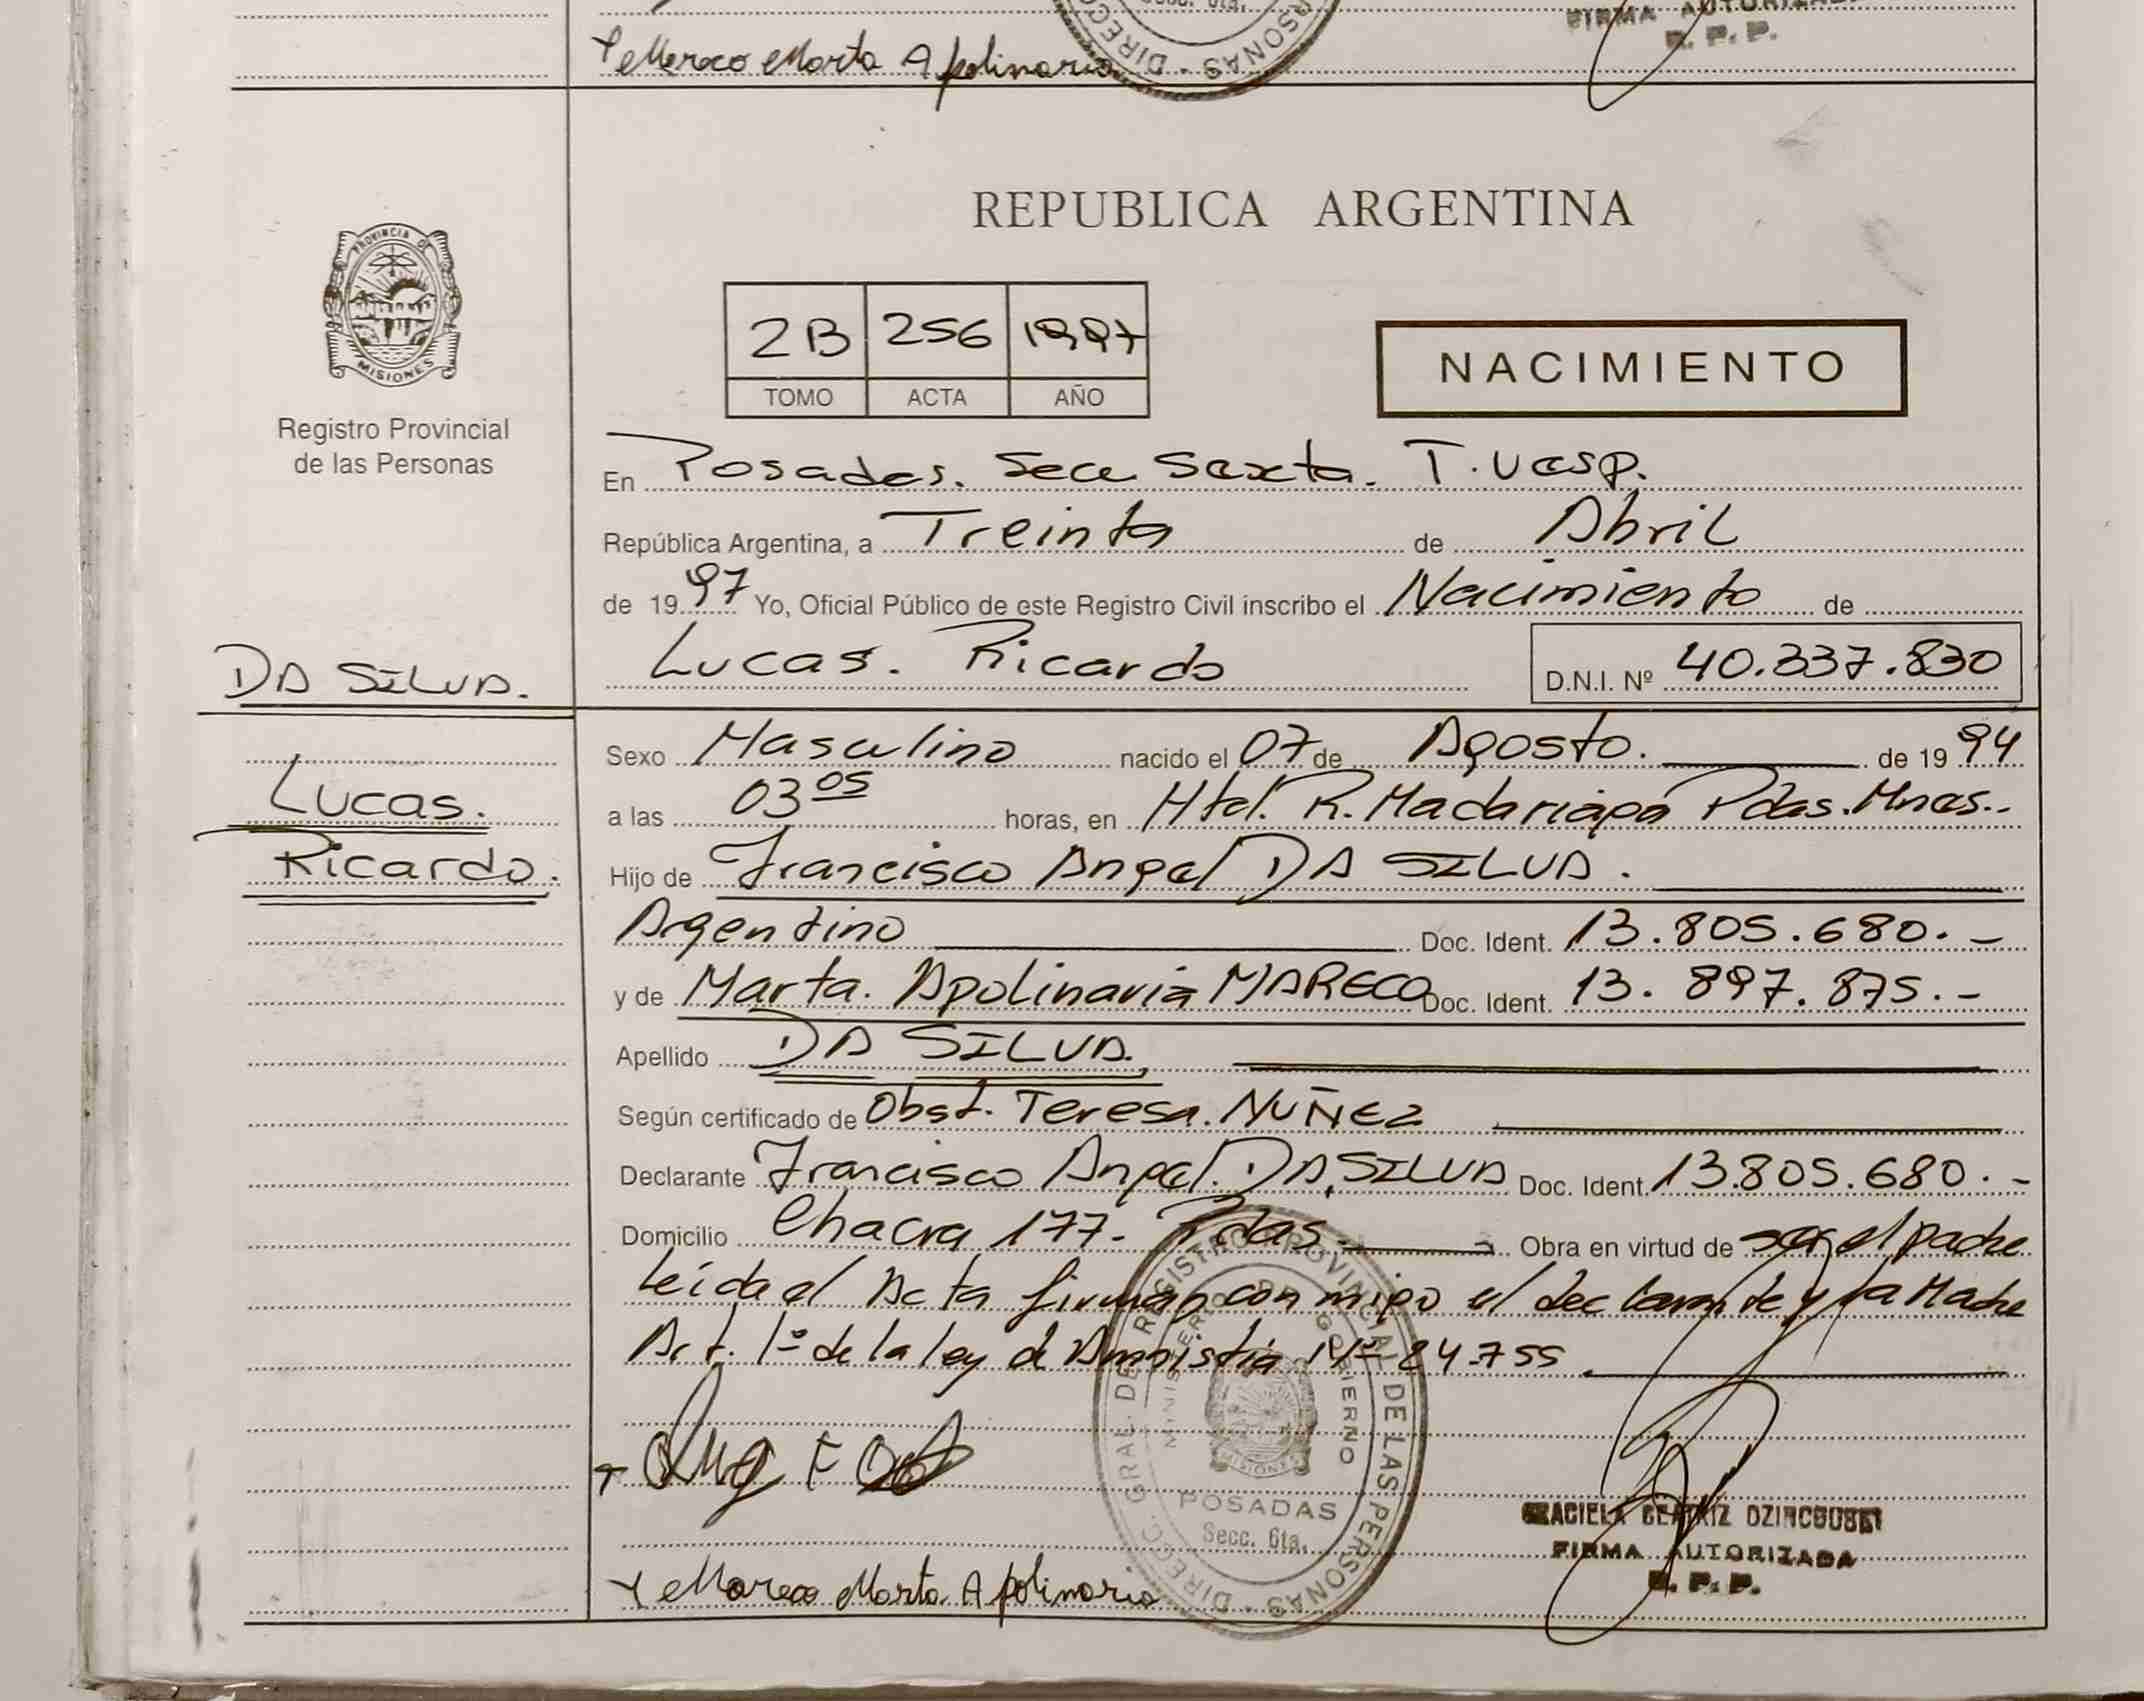 Mareco Marta Apolinaria
FIRMA AUTORIZADA
R. P. P.
REPUBLICA ARGENTINA
PROVINCIA DE MISIONES
Registro Provincial
de las Personas
2B 256 1997
TOMO ACTA AÑO
NACIMIENTO
En Posadas. Secc Sexta. T. Vesp.
República Argentina, a Treinta de Abril
de 1997 Yo, Oficial Público de este Registro Civil inscribo el Nacimiento de
Lucas. Ricardo D.N.I. Nº 40.337.830
DA SILVA.
Lucas.
Ricardo.
Sexo Masculino nacido el 07 de Agosto. de 1994
a las 03 05 horas, en Htal. R. Madariaga Pdas. Mnes.
Hijo de Francisco Angel DA SILVA.
Argentino Doc. Ident. 13.805.680.-
y de Marta. Apolinaria MARECO Doc. Ident. 13.897.875.-
Apellido DA SILVA.
Según certificado de Obst. Teresa. NUÑEZ
Declarante Francisco Angel. DA SILVA Doc. Ident. 13.805.680.-
Domicilio Chacra 177. Pdas. Obra en virtud de ser el padre
Leida el Acta firman conmigo el declarante y la Madre
Art. 1º de la ley de Amnistia Nº 24.755
DIRECC. GRAL. DE REGISTRO PROVINCIAL DE LAS PERSONAS
MINISTERIO DE GOBIERNO
MISIONES
POSADAS
Secc. 6ta.
GRACIELA BEATRIZ
FIRMA AUTORIZADA
R. P. P.
Mareco Marta Apolinaria